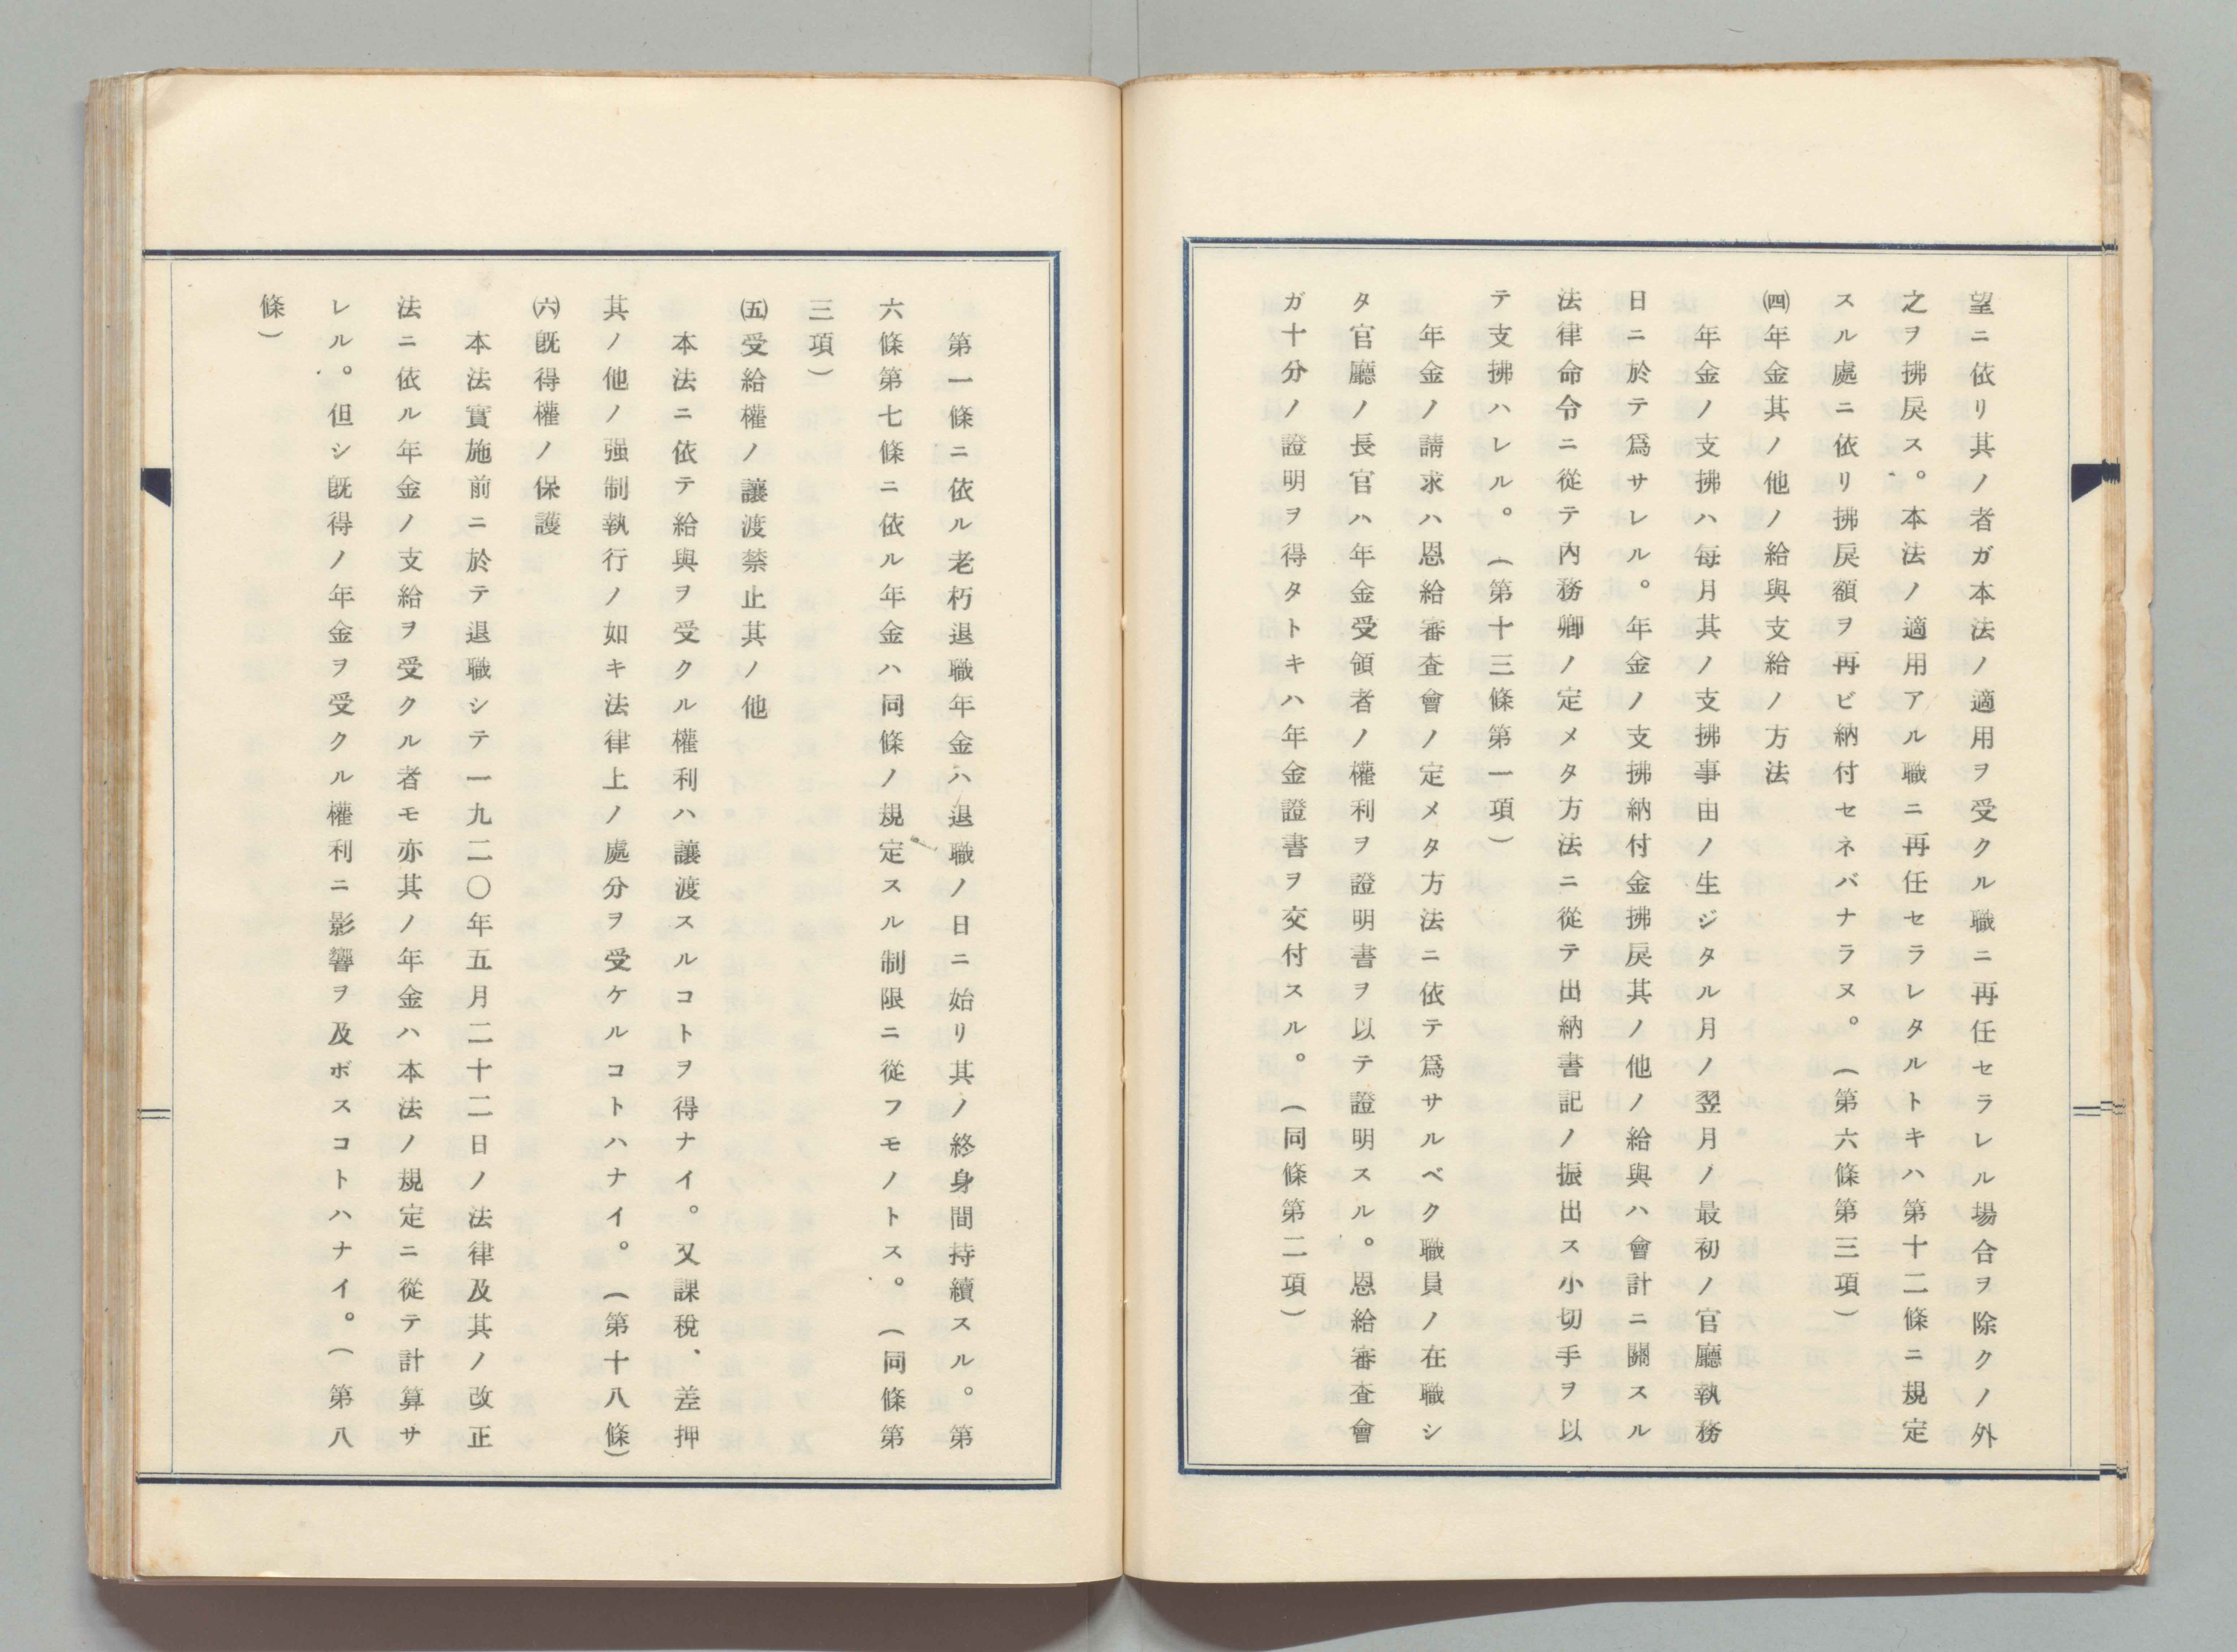 望ニ依リ其ノ者ガ本法ノ適用ヲ受クル職ニ再任セラレル場合ヲ除クノ外
之ヲ拂戻ス。本法ノ適用アル職ニ再任セラレタルトキハ第十二條ニ規定
スル處ニ依リ拂戻額ヲ再ビ納付セネバナラヌ。(第六條第三項)
㈣年金其ノ他ノ給與支給ノ方法
年金ノ支拂ハ每月其ノ支拂事由ノ生ジタル月ノ翌月ノ最初ノ官廳執務
日ニ於テ爲サレル。年金ノ支拂納付金拂戻其ノ他ノ給與ハ會計ニ關スル
法律命令ニ從テ內務卿ノ定メタ方法ニ從テ出納書記ノ振出ス小切手ヲ以
テ支拂ハレル。(第十三條第一項)
年金ノ請求ハ恩給審査會ノ定メタ方法ニ依テ爲サルベク職員ノ在職シ
タ官廳ノ長官ハ年金受領者ノ權利ヲ證明書ヲ以テ證明スル。恩給審査會
ガ十分ノ證明ヲ得タトキハ年金證書ヲ交付スル。(同條第二項)
第一條ニ依ル老朽退職年金ハ退職ノ日ニ始リ其ノ終身間持續スル。第
六條第七條ニ依ル年金ハ同條ノ規定スル制限ニ從フモノトス。(同條第
三項)
㈤受給權ノ讓渡禁止其ノ他
本法ニ依テ給與ヲ受クル權利ハ讓渡スルコトヲ得ナイ。又課稅、差押
其ノ他ノ强制執行ノ如キ法律上ノ處分ヲ受ケルコトハナイ。(第十八條)
㈥旣得權ノ保護
本法實施前ニ於テ退職シテ一九二〇年五月二十二日ノ法律及其ノ改正
法ニ依ル年金ノ支給ヲ受クル者モ亦其ノ年金ハ本法ノ規定ニ從テ計算サ
レル。但シ旣得ノ年金ヲ受クル權利ニ影響ヲ及ボスコトハナイ。(第八
條)